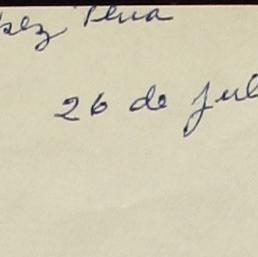 pez Peña
26 de jul